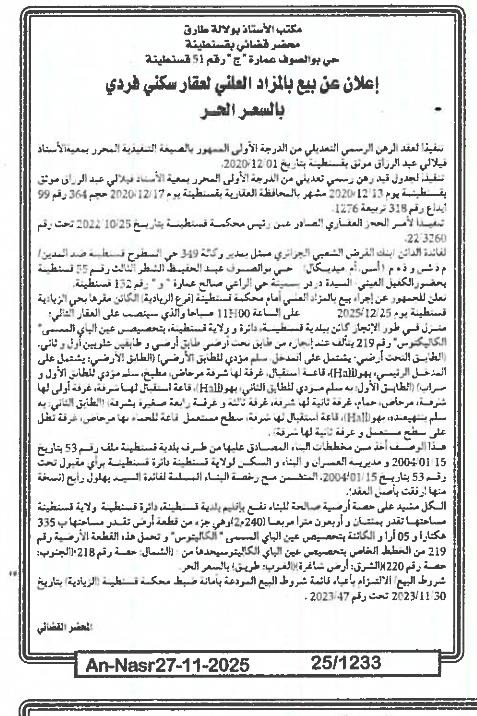 مكتب الأستاذ بولالة طارق
محضر قضائي بقسنطينة
حي بوالصوف عمارة "ج" رقم 51 قسنطينة
إعلان عن بيع بالمزاد العلني لعقار سكني فردي
بالسعر الحر
تنفيذا لعقد الرهن الرسمي التعديلي من الدرجة الأولى الممهور بالصيغة التنفيذية المحرر بمعية الأستاذ
فيلالي عبد الرزاق موثق بقسنطينة بتاريخ 2020/12/01.
تنفيذا لجدول قيد رهن رسمي تعديلي من الدرجة الأولى المحرر بمعية الأستاذ فيلالي عبد الرزاق موثق
بقسنطينة يوم 2020/12/13 مشهر بالمحافظة العقارية بقسنطينة يوم 2020/12/17 حجم 364 رقم 99
إيداع رقم 318 تربيعة 1276.
تنفيذا لأمر الحجز العقاري الصادر عن رئيس محكمة قسنطينة بتاريخ 2022/10/25 تحت رقم
22/3260
لفائدة الدائن /بنك القرض الشعبي الجزائري ممثل بمدير وكالة 349 حي السطوح قسنطينة ضد المدين/
م ذ ش و ذ م م (أس.أم ميديكال) حي بوالصوف عبد الحفيظ الشطر الثالث رقم 55 قسنطينة
بحضور/الكفيل العيني: السيدة حي الراعي صالح عمارة "و" رقم 132 قسنطينة.
نعلن للجمهور عن إجراء بيع بالمزاد العلني أمام محكمة قسنطينة (فرع الزيادية) الكائن مقرها بحي الزيادية
قسنطينة يوم 2025/12/25 على الساعة 11H00 صباحا والذي سينصب على العقار التالي:
منزل في طور الإنجاز كائن ببلدية قسنطينة، دائرة و ولاية قسنطينة، بتخصيص عين الباي المسمى"
الكاليتوس" رقم 219 يتألف عند إنجازه من طابق تحت أرضي طابق أرضي و طابقين علويين أول و ثاني.
(الطابق التحت أرضي: يشتمل على المدخل، سلم مؤدي للطابق الأرضي) (الطابق الأرضي: يشتمل على
المدخل الرئيسي، بهو(Hall)، قاعة استقبال، غرفة لها شرفة مرحاض، مطبخ، سلم مؤدي للطابق الأول و
مرآب) (الطابق الأول: به سلم مؤدي للطابق الثاني، بهو (Hall)، قاعة استقبال لها شرفة، غرفة أولى لها
شرفة، مرحاض، حمام، غرفة ثانية لها شرفة، غرفة ثالثة و غرفة رابعة صغيرة بشرفة) (الطابق الثاني: به
سلم بهو(Hall)، قاعة استقبال لها شرفة، سطح مستعمل قاعة للحمام بها مرحاض، غرفة تطل
على سطح مستعمل و غرفة ثانية لها شرفة).
هذا الوصف أخذ من مخططات البناء المصادق عليها من طرف بلدية قسنطينة ملف رقم 53 بتاريخ
2004/01/15 و مديرية العمران و البناء و السكن لولاية قسنطينة دائرة قسنطينة برأي مقبول تحت
رقم 53 بتاريخ 2004/01/15. المتضمن منح رخصة البناء المسلمة لفائدة السيد بهلول رابح (نسخة
منها أرفقت بأصل العقد).
الكل مشيد على حصة أرضية صالحة للبناء تقع بإقليم بلدية قسنطينة، دائرة قسنطينة ولاية قسنطينة
مساحتها تقدر بمئتان و أربعون مترا مربعا (240م2)وهي جزء من قطعة أرض تقدر مساحتها ب 335
هكتارا و 05 آرا و الكائنة بتخصيص عين الباي المسمى " الكاليتوس" و تحمل هذه القطعة الأرضية رقم
219 من المخطط الخاص بتخصيص عين الباي الكاليتوس يحدها من : (الشمال: حصة رقم 218) (الجنوب:
حصة رقم 220)(الشرق: أرض شاغرة)(الغرب: طريق) بالسعر الحر.
شروط البيع/ الالتزام بأعباء قائمة شروط البيع المودعة بأمانة ضبط محكمة قسنطينة (الزيادية) بتاريخ
2023/11/30 تحت رقم 2023/47.
المحضر القضائي
An-Nasr27-11-2025 25/1233